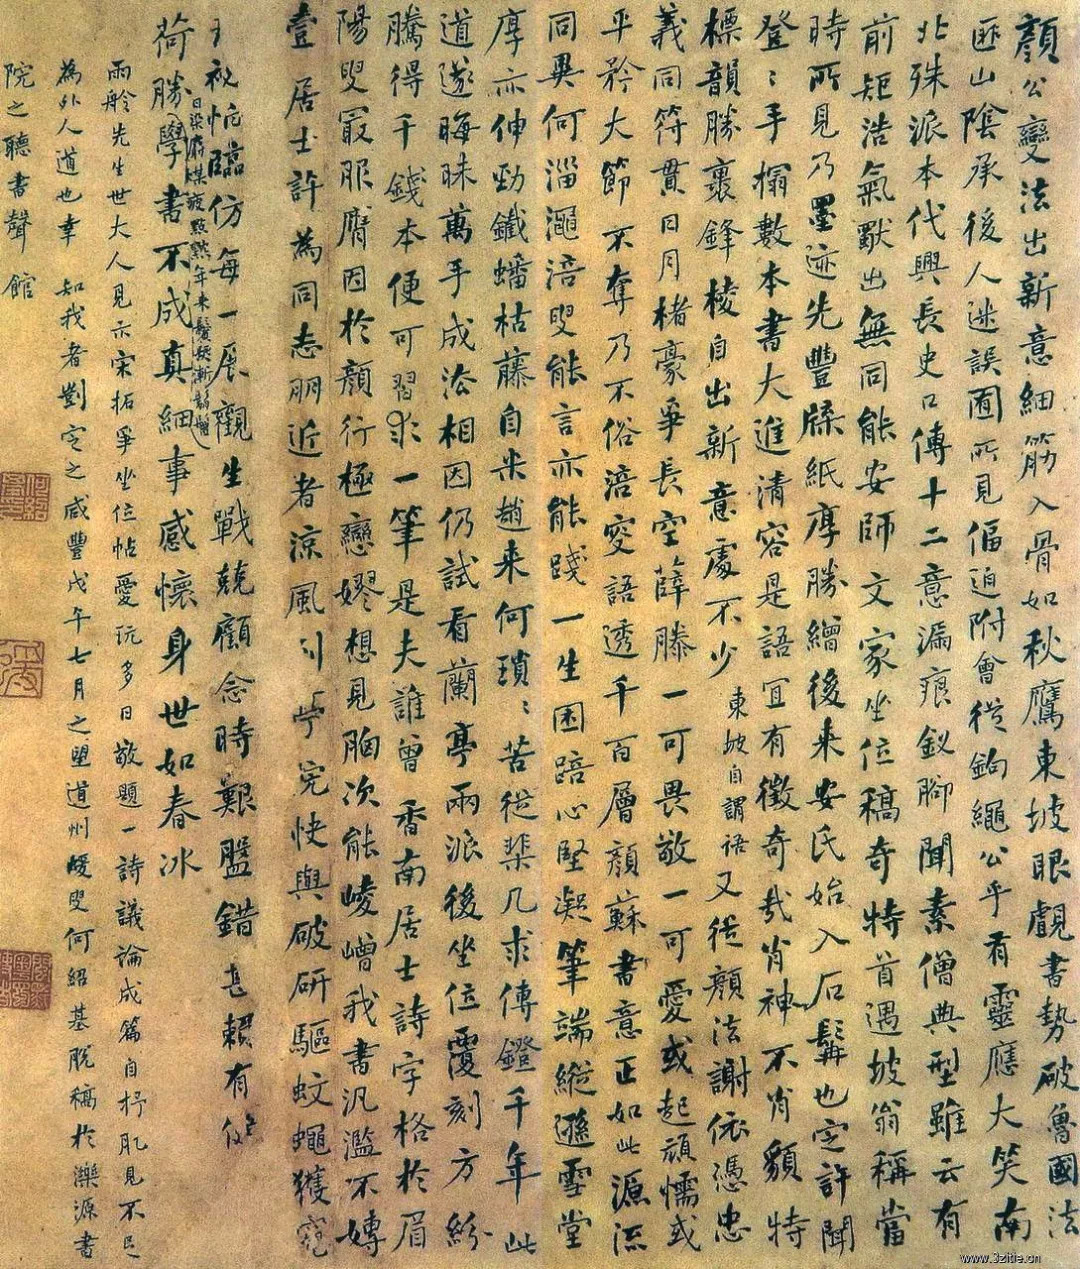 顏公變法出新意細筋入骨如秋鷹東坡眼覷書勢破魯國法
匪山陰承後人迷誤囿所見偪迫附會從鉤繩公乎有靈應大笑南
北殊派本代興長史口傳十二意漏痕釵腳聞素僧典型雖云有
前矩浩氣獸出無同能安師文家坐位稿奇特首遇坡翁稱當
時所見乃墨迹先豐牒紙厚勝繒後來安氏始入石髯也定許聞
登登手搨數本書大進清容是語宜有徵奇哉肖神不肖貌特
標韻勝裹鋒棱自出新意處不少東坡自謂語又從顏法謝依憑忠
義同符貫日月楮豪爭長空薛滕一可畏敬一可愛或起頑懦或
平矜大節不奪乃不俗涪叟語透千百層顏蘇書意正如此源流
同異何淄澠涪叟能言亦能踐一生困踣心堅凝筆端縱遜雪堂
厚亦伸勁鐵蟠枯藤自米趙來何瑣瑣苦從棐几求傳鐙千年此
道遂晦昧萬手成法相因仍試看蘭亭兩派後坐位覆刻方紛
騰得千錢本便可習求一筆是夫誰曾香南居士詩字格於眉
陽叟最服膺因於顏行極戀嫪想見胸次能崚嶒我書汎濫不媷
壹居士許為同志朋近者涼風到泞完快與破研驅蚊蠅獲窺
祕帖臨仿每一展觀生戰兢顧念時艱盤錯甚賴有
荷勝學書不成真細事感懷身世如春冰
雨舲先生世大人見示宋拓爭坐位帖愛玩多日敬題一詩議論成篇自抒肊見不足
為外人道也幸知我者劉定之咸豐戊午七月之望道州媛叟何紹基脫稿於濼源書
院之聽書聲館
www.3zitie.cn